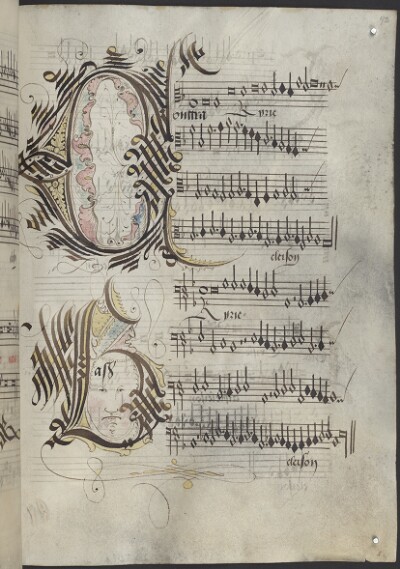 Contra
Kyrie
eleison
Kyrie
Baſſ
eleison